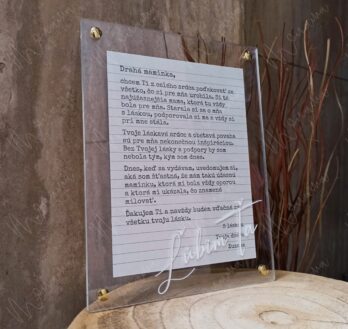 Drahá maminka,
chcem Ti z celého srdca poďakovať za
všetko, čo si pre mňa urobila. Si tá
najúžasnejšia mama, ktorá tu vždy
bola pre mňa. Starala si sa o mňa
s láskou, podporovala si ma a vždy si
pri mne stála.
Tvoje láskavé srdce a obetavá povaha
sú pre mňa nekonečnou inšpiráciou.
Bez Tvojej lásky a podpory by som
nebola tým, kým som dnes.
Dnes, keď sa vydávam, uvedomujem si,
aká som šťastná, že mám takú úžasnú
maminku, ktorá mi bola vždy oporou
a ktorá mi ukázala, čo znamená
milovať.
Ďakujem Ti a navždy budem vďačná za
všetku tvoju lásku.
S láskou
Tvoja
Ľúbim Ťa